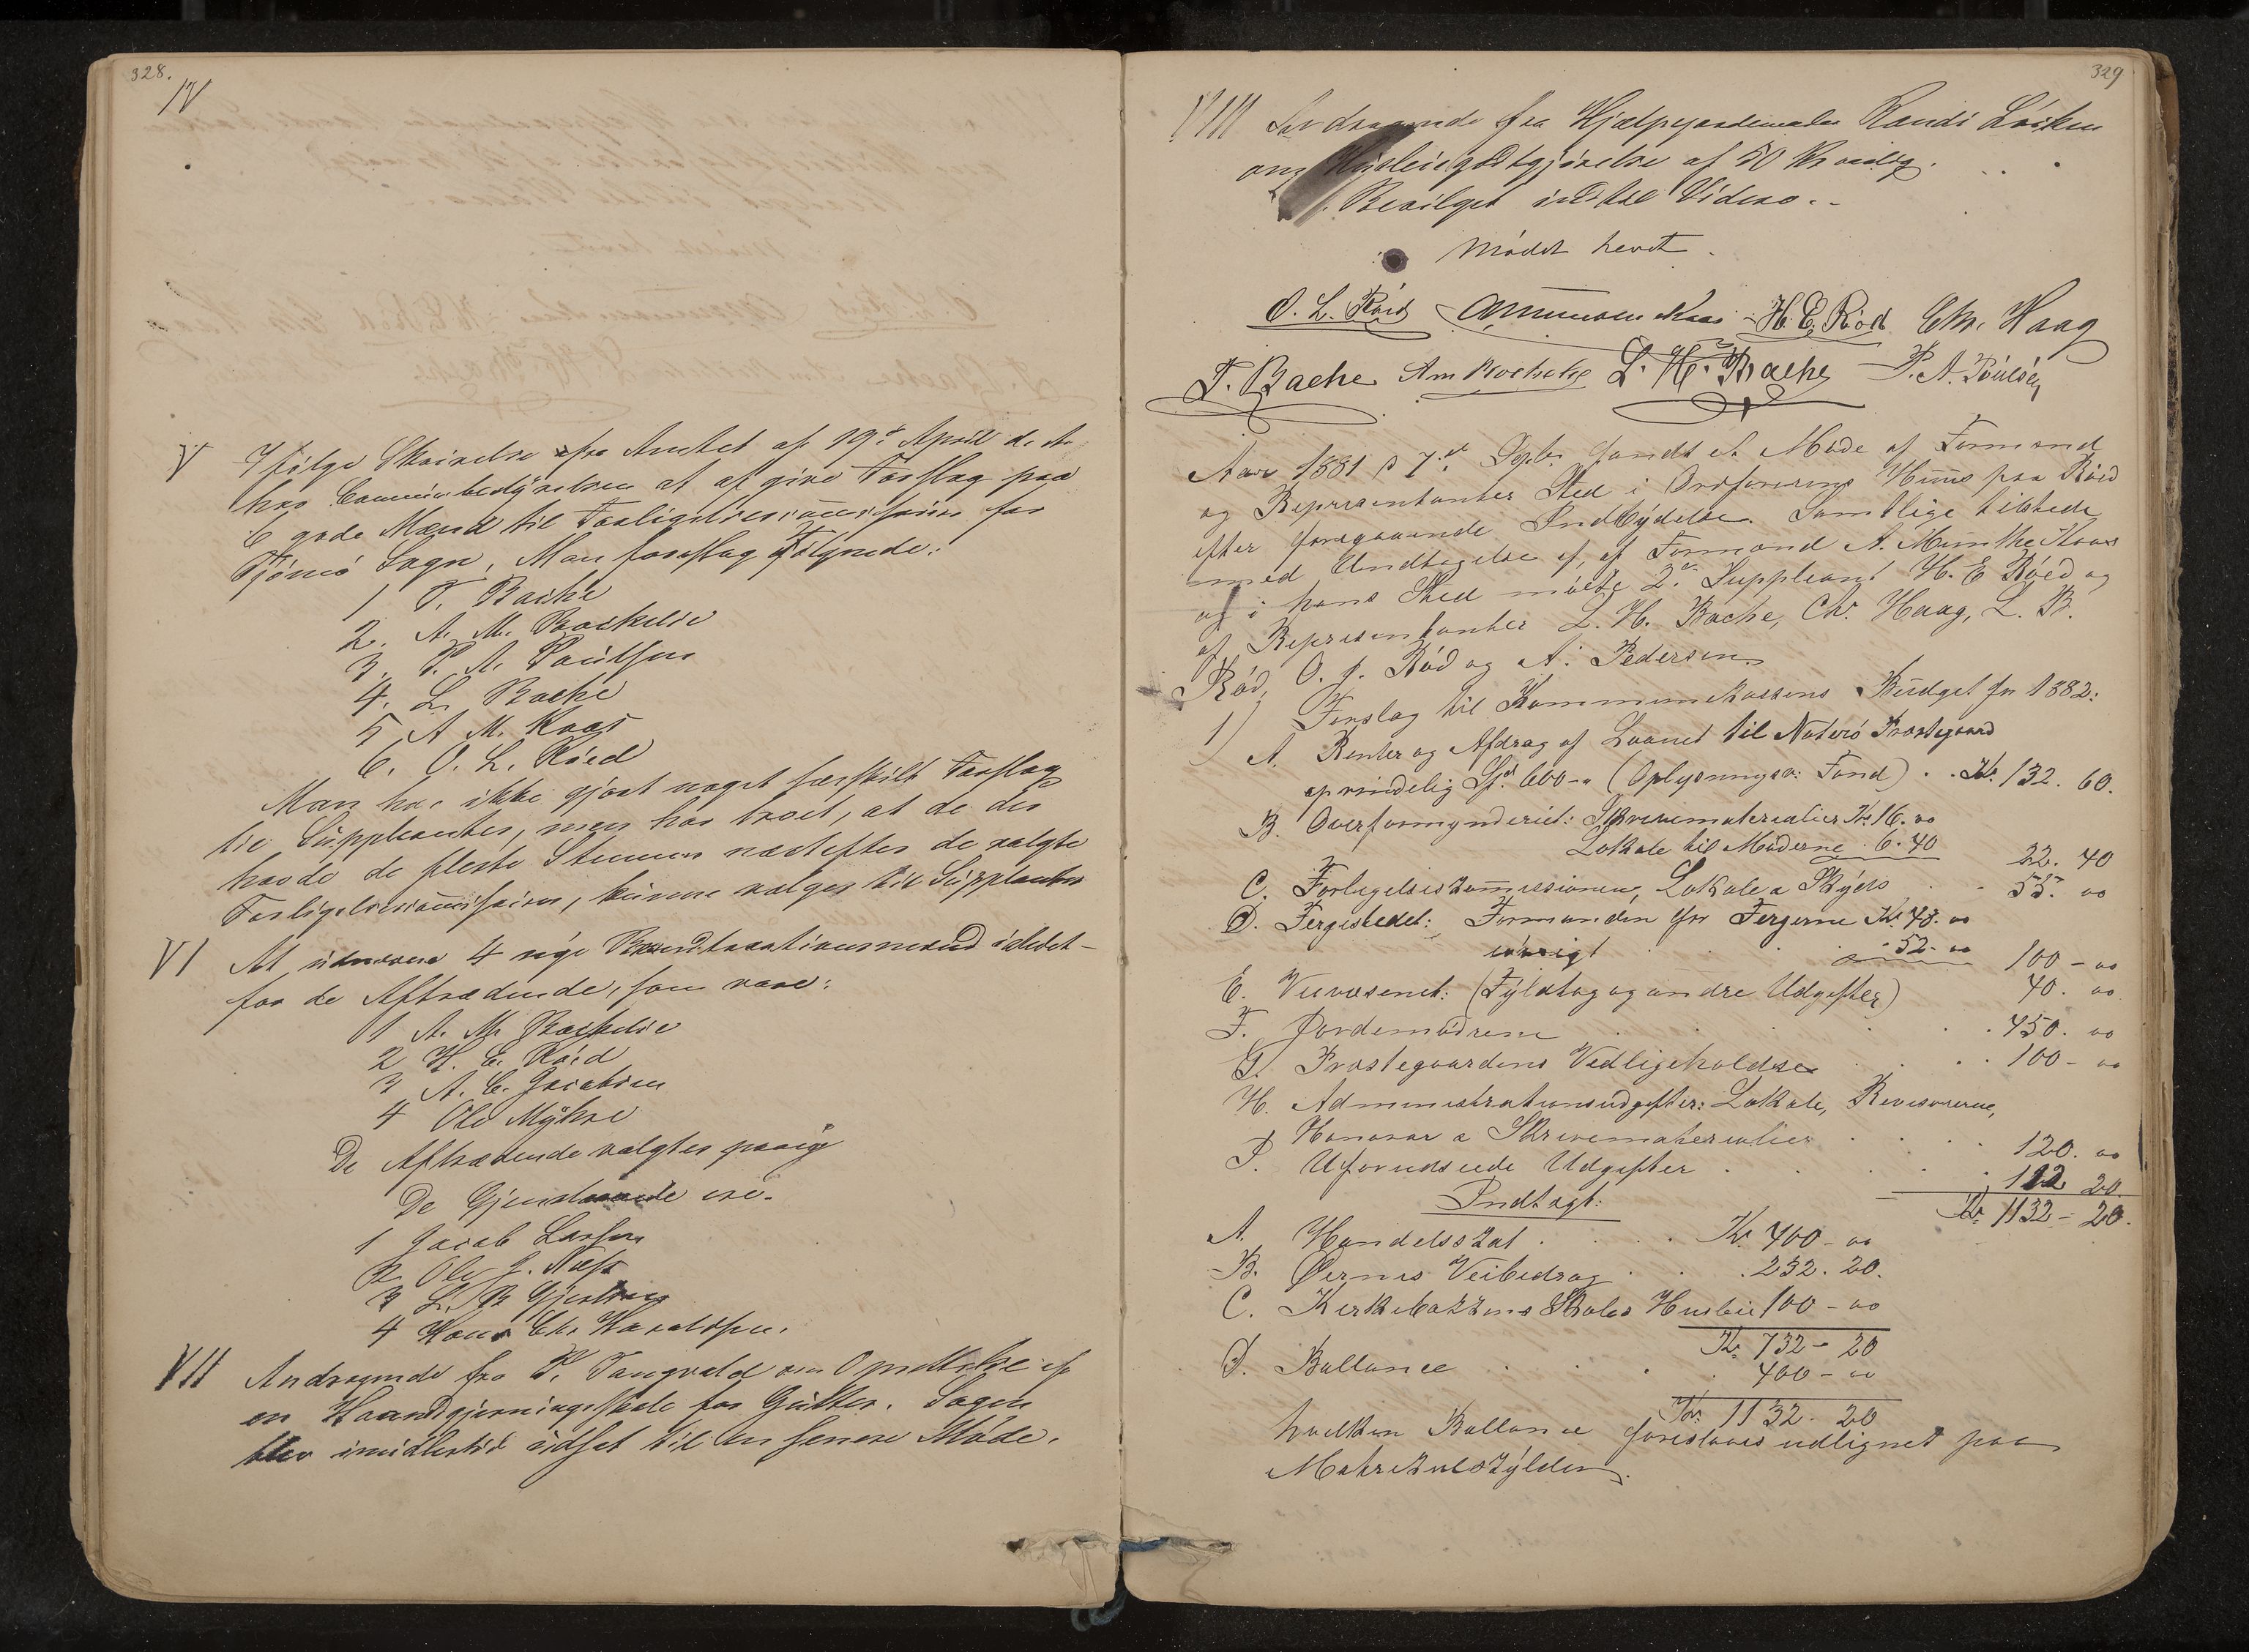 328.
IV
V Ifølge Skrivelse fra Amtet af 19de April d. A.
har Communbestyrelsen at afgive Forslag paa
6 gode Mænd til Forligelsescommission for
Tjømø Sogn, Man foreslog Følgende:
1 T. Bache
2. A. M. Roskelie
3. P. A. Paulsen
4. L. Bache
5 A M. Kaas
6. O. L. Röed
Man har ikke gjort noget særskilt Forslag
til Suppleanter, men har troet, at de der
havde de fleste Stemmer næstefter de valgte
Forligelsescommissairer, kunne vælges til Suppleanter
VI At udnævne 4 nye Brandtaxationsmænd istedet-
for de Aftrædende, som vare:
1 A. M. Roskelie
2 H. E. Röed
3 A. C. Jacobsen
4 Ole Mykre
De Aftrædende valgtes paany
De Gjenstaaende ere.
1 Jacob Larsen
2. Ole J. Næss
3 L. B Gjertsen
4 Hans Chr Haraldsen.
VII Andragende fra P. Tangvald om Oprettelse af
en Haandgjerningsskole for Gutter. Sagen
blev imidlertid udsat til en senere Møde.
329
VIII Andragende fra Hjælpejordemoder Randi Løiken
om Husleiegodtgjørelse af 50 Kr aarlig.
Bevilget indtil Videre. -
Mödet hevet.
O. L. Röed A Munthe Kaas H. E. Röd Chr. Haag
T. Bache Am Roskelie L. H. Bache P. A. Paulsen
Aar 1881 d 7de Septbr. fandt et Møde af Formænd
og Repræsentanter Sted i Ordførerens Huus paa Röed
efter foregaaende Indbydelse. Samtlige tilstede
med Undtagelse af, af Formænd A. Munthe Kaas
og i hans Sted mødte 2den Suppleant H. E Röed og
af Repræsentanter L. H. Bache, Chr. Haag, L. B.
Röd, O. J. Röd og A. Pedersen.
1) Forslag til Kommunekassens Budget for 1882:
A. Renter og Afdrag af Laanet til Nøterö Præstegaard
oprindelig Spd. 600 - " (Oplysningsv: Fond) . . Kr. 132. 60.
B. Overformynderiet: Skrivematerialier Kr. 16. oo
Lokale til Møderne . 6. 40 22. 40
C. Forligelseskommissionen, Lokale a Skyds . . 55. oo
D. Fergestedet: Formanden for Fergerne Kr. 48. oo
iøvrigt . . . 52. oo 100 - oo
E. Veivæsenet: (Fyldtag og andre Udgifter) 40. oo
F. Jordemødrene . . . . 450. oo
G. Præstegaardens Vedligeholdse . . 100 - oo
H. Administrationsudgifter: Lokale, Revisorerne,
Honorar a Skrivematerialier . . . 120. oo
I. Uforudseede Udgifter . . . . 112 20.
Kr. 1132 - 20.
Indtægt:
A. Handelsskat . . . . Kr. 400 - oo
B. Øernes Veibidrag . . . 232. 20.
C. Kirkekassens Skoles Husleie 100 - oo
Kr. 732 - 20
D. Ballance . . . . 400 - oo
Kr. 1132 - 20
hvilken Ballance foreslaaes udlignet paa
Matrikulskylden.